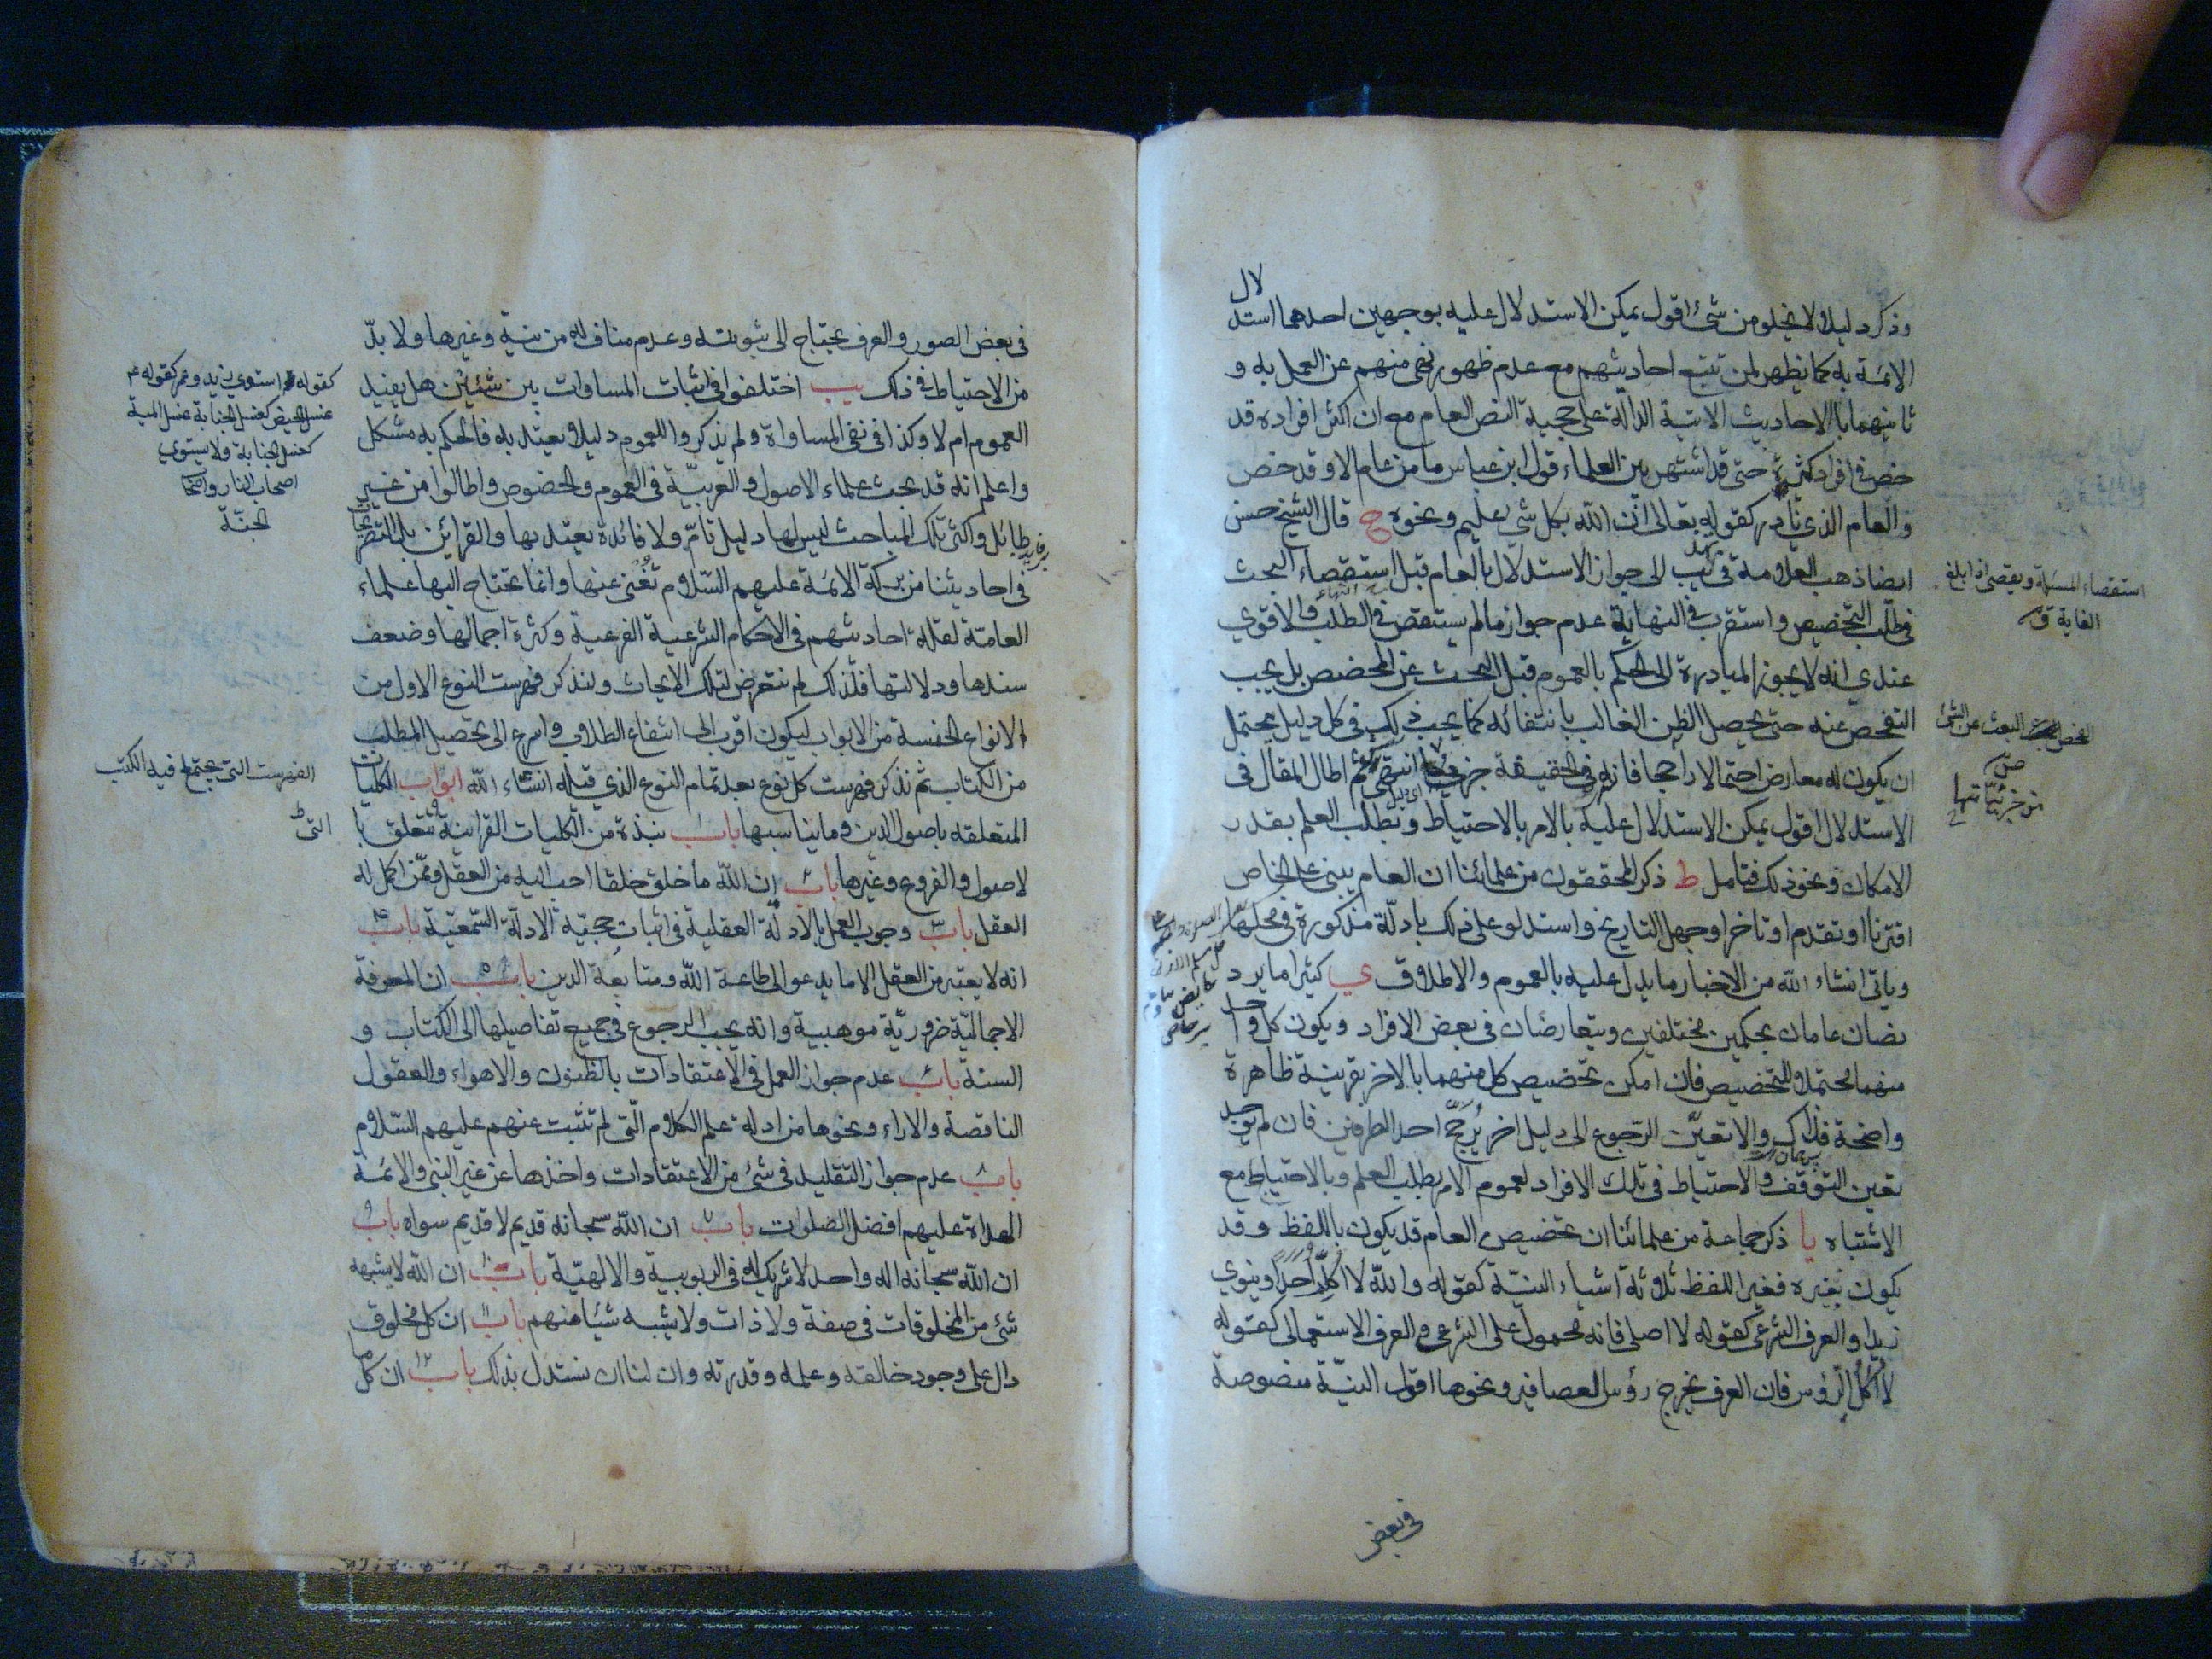 وذكر دليلا ولا يخلو من شئ اقول يمكن الاستدلال عليه بوجهين احدهما استدلال
الائمة به كما يظهر لمن تتبع احاديثهم مع عدم ظهور نهى منهم عن العمل به و
ثانيهما بالاحاديث الاتية الدالة على حجية النص العام مع ان اكثر افراده قد
خص فى افراد كثيرة حتى قد اشتهر بين العلماء قول ابن عباس ما من عام الا وقد خص
والعام الذى نادر كقوله تعالى انّ الله بكل شئ عليم ونحوه ح قال الشيخ حسن
ايضا ذهب العلامة فى يب الى جواز الاستدلال بالعام قبل استقصاء البحث
فى طلب التخصيص واستقرب فى النهاية عدم جواز ما لم يستقص فى الطلب والاقوى
عندى انه لا يجوز المبادرة الى الحكم بالعموم قبل البحث عن المخصص بل يجب
التفحص عنه حتى يحصل الظن الغالب بانتفائه كما يجب ذلك فى كل دليل يحتمل
ان يكون له معارض احتمالا راجحا فانه فى الحقيقة جزئى انتهى ثم اطال المقال فى
الاستدلال اقول يمكن الاستدلال عليه بالامر بالاحتياط وبطلب العلم بقدر
الامكان ونحو ذلك فتامل ط ذكر المحققون من علمائنا ان العام يبنى على الخاص
اقترنا او تقدم او تاخر او جهل التاريخ واستدلو على ذلك بادلة مذكورة فى محلها
وياتى انشاء الله من الاخبار ما يدل عليه بالعموم والاطلاق ي كثيرا ما يرد
نصان عامان بحكمين مختلفين ويتعارضان فى بعض الافراد ويكون كل واحد
منهما محتملا للتخصيص فان امكن تخصيص كل منهما بالاخر بقرينة ظاهرة
واضحة فذاك والا تعيّن الرجوع الى دليل اخر يُرَجّح احد الطرفين فان لم يوجد
تعين التوقف والاحتياط فى تلك الافراد لعموم الامر بطلب العلم وبالاحتياط مع
الاشتباه يا ذكر جماعة من علمائنا ان تخصيص العام قد يكون باللفظ وقد
يكون بغيره فغير اللفظ ثلاثة اشياء النيّة كقوله والله لا اكلّم احدا وينوى
زيدا والعرف الشرعى كقوله لا اصلى فانه محمول على الشرعى والعرف الاستعمالى كقوله
لا آكلُ الرؤس فان العرف يخرج رؤس العصافير ونحوها اقول النيّة منصوصة
فى بعض
استقصاء المسئلة وتقصى اذا بلغ
الغاية ق
الفحص البحث عن الشئ
صل
من جزئياتها
فى بعض الصور والعرف يحتاج الى ثبوته وعدم مناف له من نية وغيرها ولا بدّ
من الاحتياط فى ذلك يب اختلفوا فى اثبات المساوات بين شيئين هل يفيد
العموم ام لا وكذا فى نفى المساواة ولم يذكروا للعموم دليلا يعتد به فالحكم به مشكل
واعلم انه قد بحث علماء الاصول والعربيّة فى العموم والخصوص واطالوا من غير
طائل واكثر تلك المباحث ليس لها دليل تامّ ولا فائدة يعتد بها والقرائن بل التصريحات
فى احاديثنا من بركة الائمة عليهم السّلام تُغنى عنها وانما تحتاج اليها علماء
العامّة لقلة احاديثهم فى الاحكام الشرعية الفرعية وكثرة اجمالها وضعف
سندها ودلالتها فلذلك لم نتعرض لتلك الابحاث ولنذكر فهرست النوع الاول من
الانواع الخمسة من الابواب ليكون اقرب الى انتفاع الطلاب واسرع الى تحصيل المطلب
من الكتاب ثم نذكر فهرست كل نوع بعد تمام النوع الذى قبله انشاء الله ابواب الكليات
المتعلقه باصول الدين وما يناسبها باب نبذة من الكليات القرانية تتعلق با
لاصول والفروع وغيرها باب ان الله ما خلق خلقا احب اليه من العقل وممّن اكمل له
العقل باب وجوب العمل بالادلّة العقلية فى اثبات حجيّة الادلة السّمعيّة باب
انه لا يعتبر من العقل الا ما يدعو الى طاعة الله ومتابعة الدين باب ان المعرفة
الاجماليّة ضروريّة موهبية وانه يجب الرجوع فى جميع تفاصيلها الى الكتاب و
السنة باب عدم جواز العمل فى الاعتقادات بالظنون والاهواء والعقول
الناقصة والاراء ونحوها من ادلة علم الكلام الّتى لم تثبت عنهم عليهم السّلام
باب عدم جواز التقليد فى شئ من الاعتقادات واخذها عن غير النبى والائمة
الهداة عليهم افضل الصلوات باب ان الله سبحانه قديم لا قديم سواه باب
ان الله سبحانه اله واحد لا شريك له فى الربوبية والالهيّة باب ان الله لا يشبهه
شئ من المخلوقات فى صفة ولا ذات ولا يشبه شيئا منهم باب ان كل مخلوق
دال على وجود خالقه وعلمه وقدرته وان لنا ان نستدل بذلك باب ان كل
كقوله استوى زيد وعمر كقوله ع
غسل الحيض كغسل الجنابة غسل الميتة
كغسل الجنابة ولا يستوى
اصحاب النار واصحاب
الجنّة
الفهرست التى يجتمع فيه الكتب